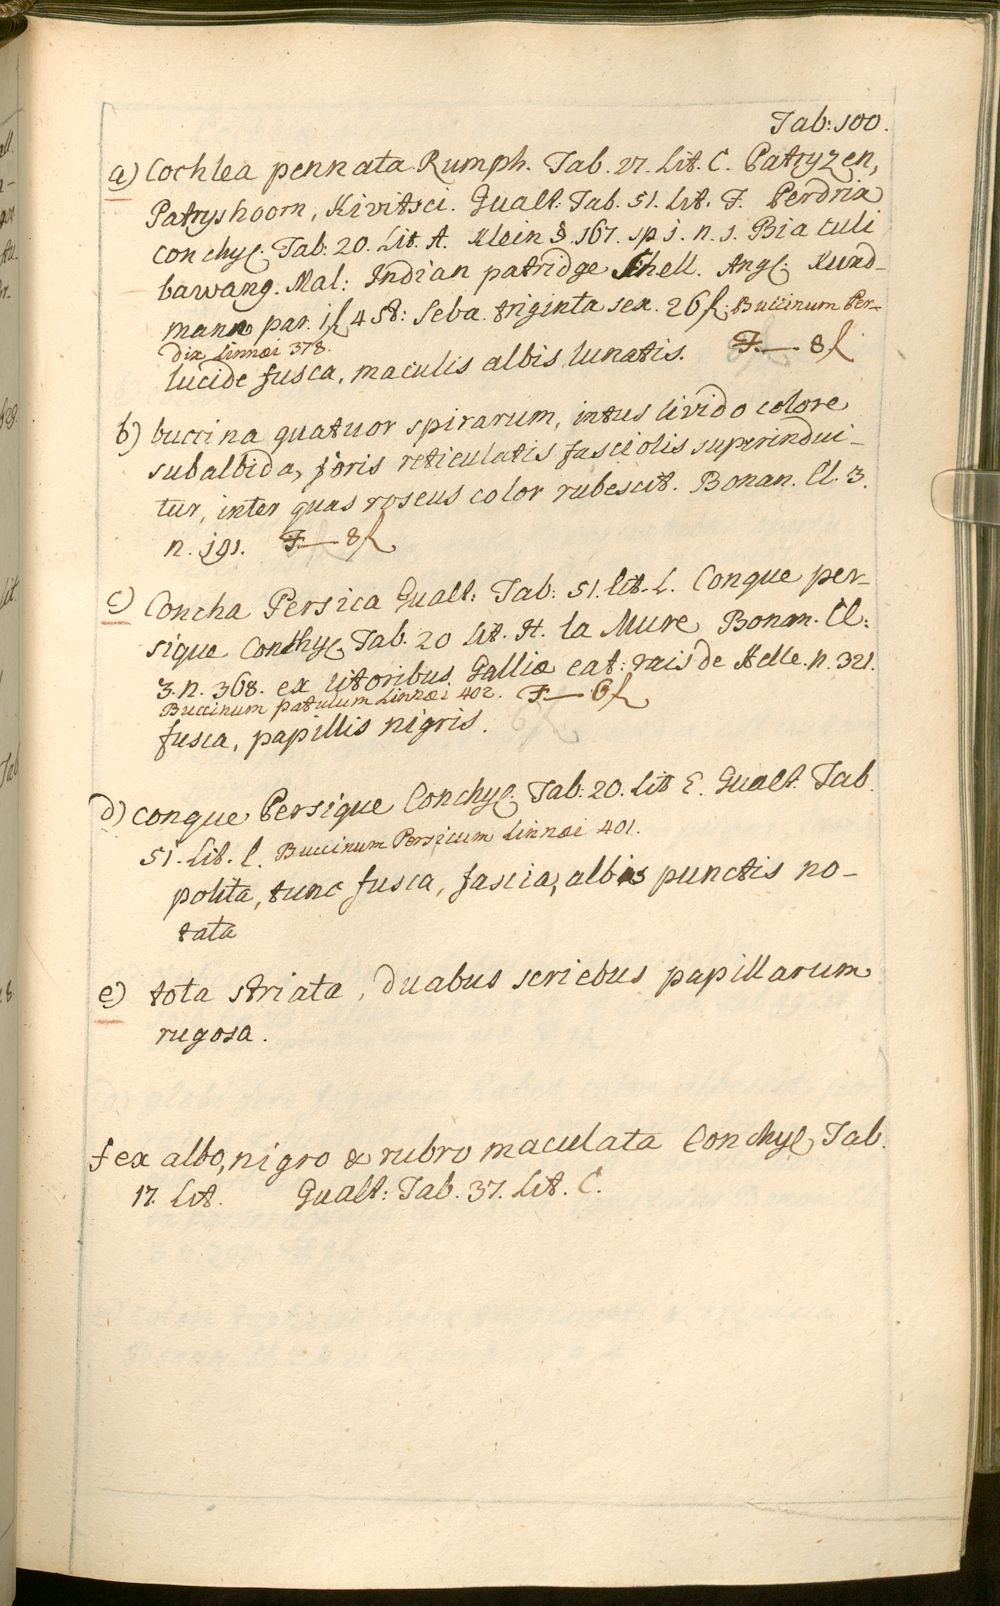 Tab: 100.
a) Cochlea pennata Rumph. Tab. 27. Lit. C. Patryzen,
Patryshoorn, Kivitsei. Gualt. Tab. 51. Lit. F. Perdrix
conchyl. Tab: 20. Lit. A. Klein §. 167. sp 1. n. 1. Bia tuli
bawang. Mal: Indian patridge Shell. Angl. Kund-
mann par. 1 fl 4 st: Seba. triginta sex. 26 fl. Buccinum Per-
dix Linnæi 378.
lucide fusca, maculis albis lunatis. F— 8 fl
b) buccina quatuor spirarum, intus livido colore
subalbida, foris reticulatis fasciolis superindui-
tur, inter quas roseus color rubescit. Bonan. Cl. 3.
n. 191. F— 8 fl
c) Concha Persica Gualt: Tab: 51. lit. L. Conque per-
sique Conchyl. Tab. 20 Lit. H. la Mure Bonan. Cl:
3. n. 368. ex litoribus Galliæ cat: rais de Helle. n. 321.
Buccinum patulum Linnæi 402. F— 6 fl
fusca, papillis nigris.
d) conque Persique Conchyl. Tab: 20. Lit E. Gualt. Tab.
51. Lit. l. Buccinum Persicum Linnæi 401.
polita, tunc fusca, fascia, albis punctis no-
tata
e) tota striata, duabus seriebus papillarum
rugosa.
f ex albo, nigro & rubro maculata Conchyl. Tab.
17. Lit. Gualt: Tab. 37. Lit. C.